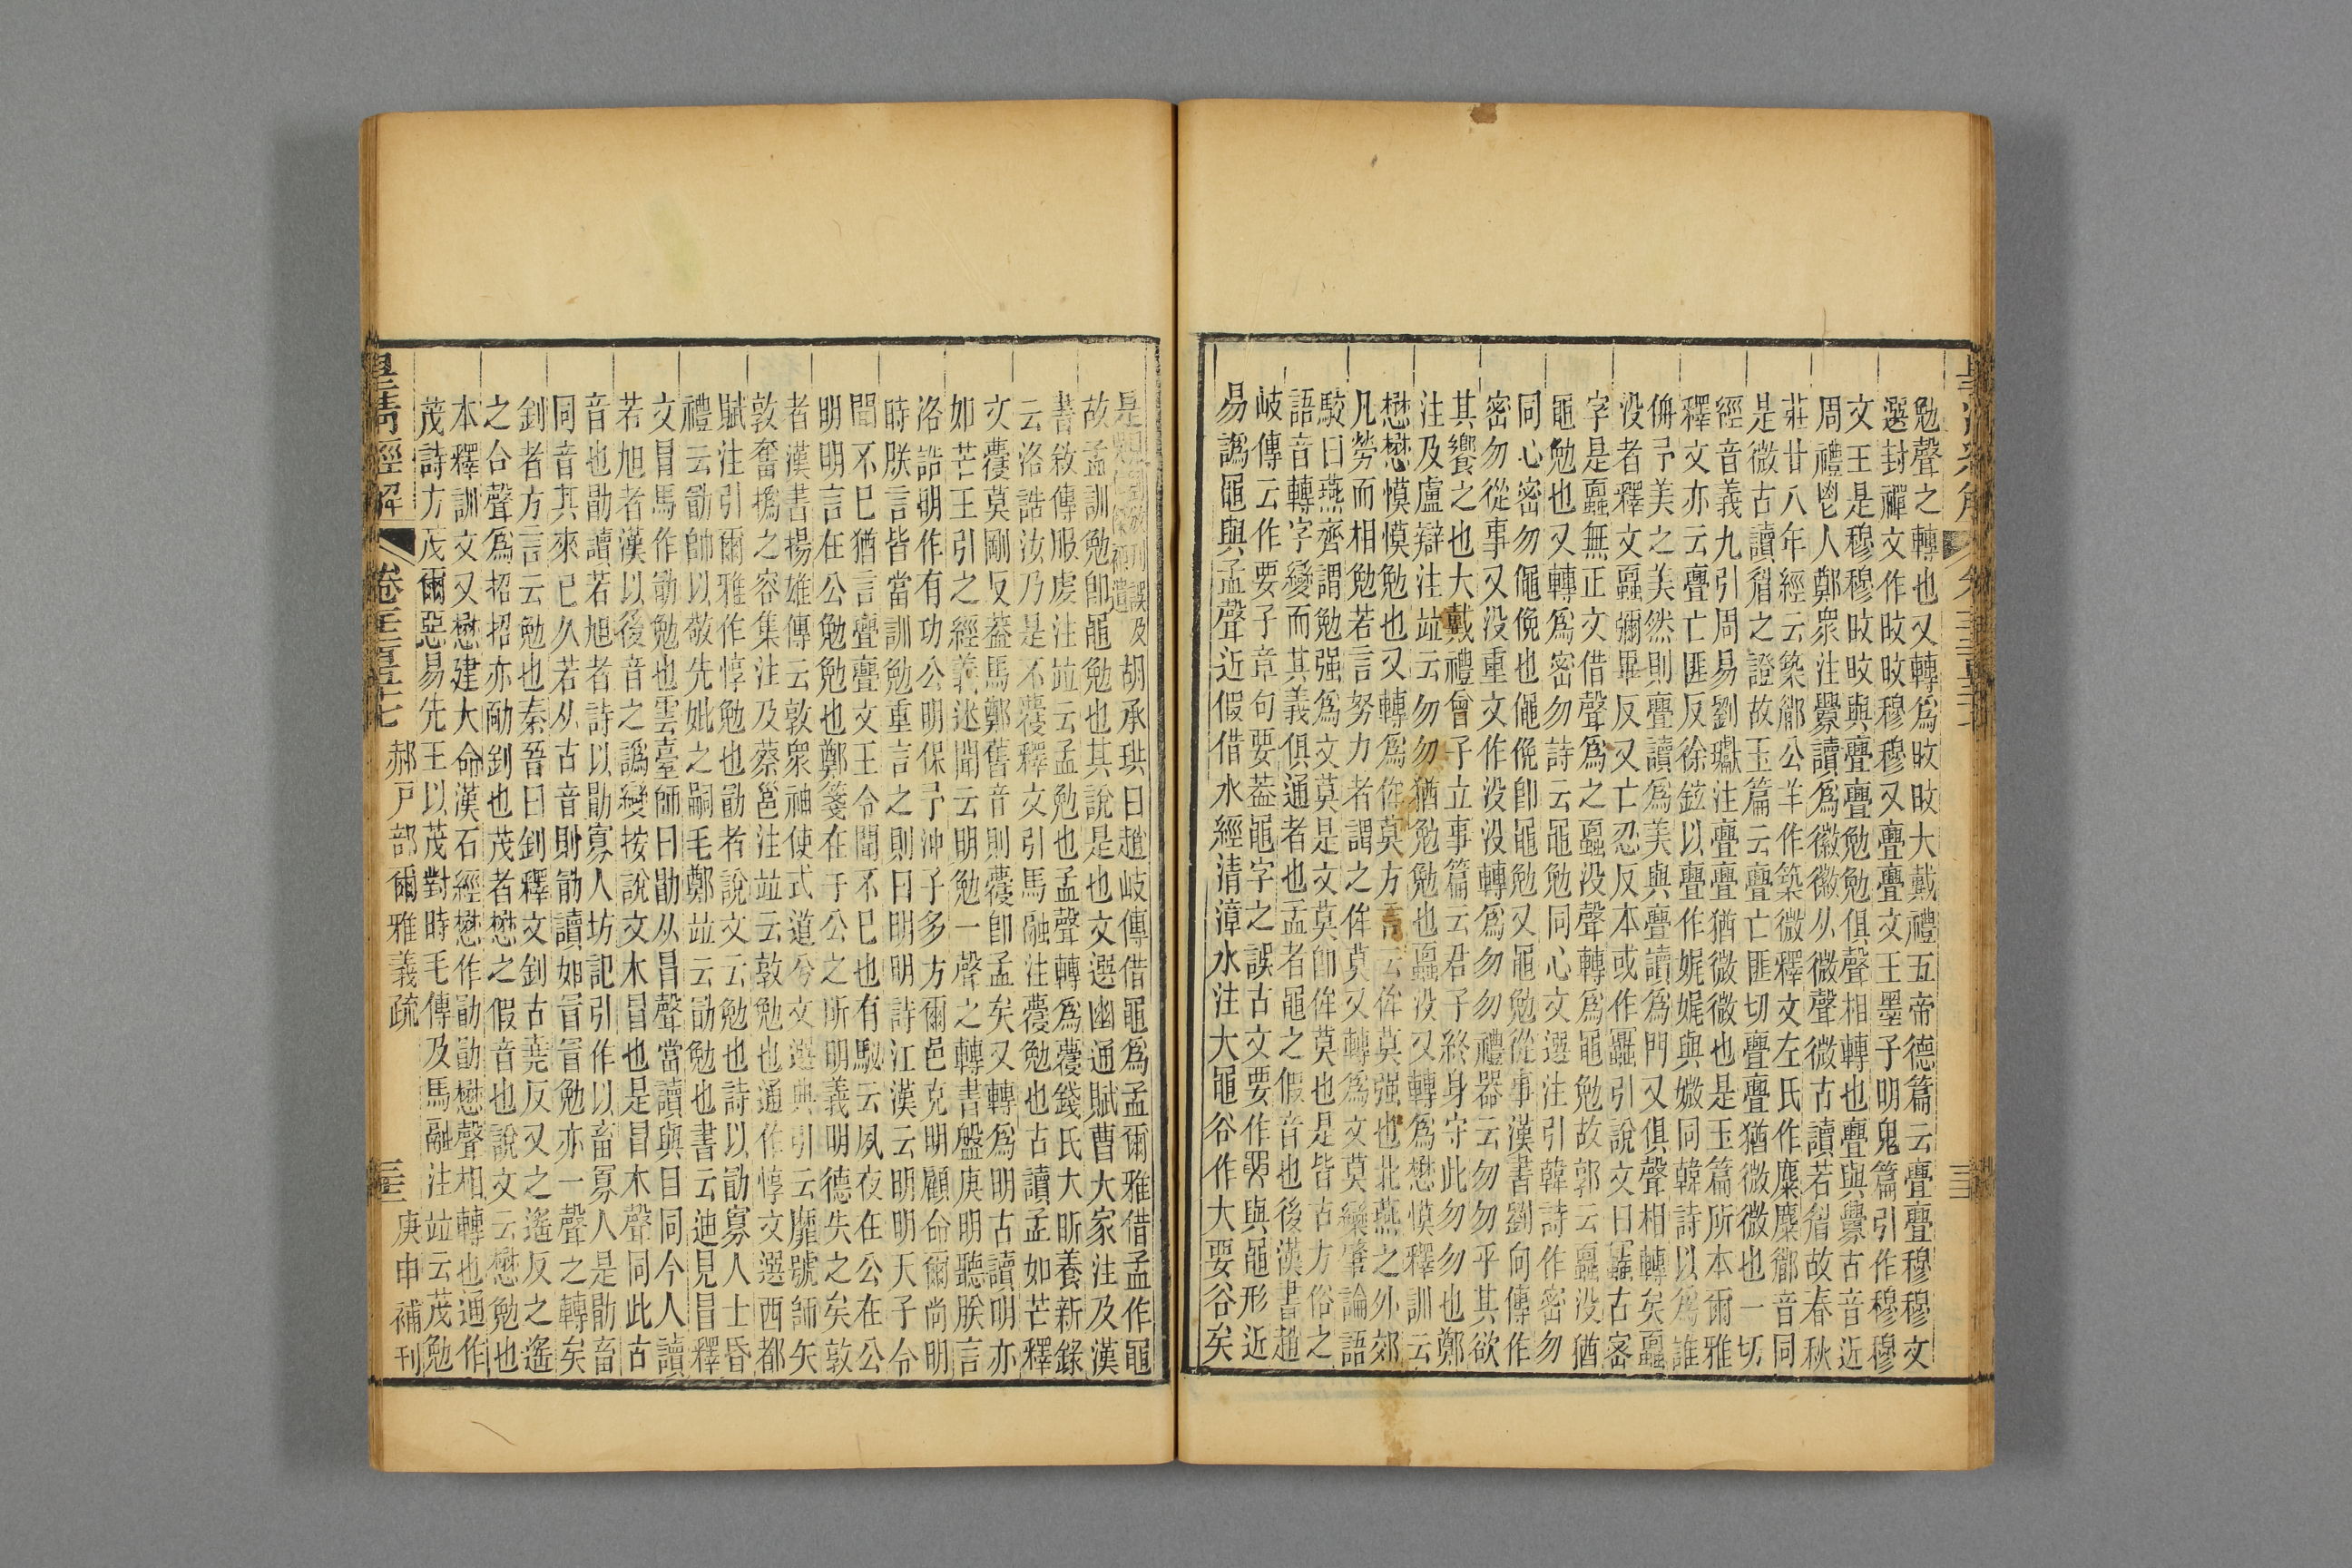 勉聲之轉也又轉爲敃敃大戴禮五帝德篇云亹亹穆穆文
選封禪文作敃敃穆穆又亹亹文王墨子明鬼篇引作穆穆
文王是穆穆敃敃與亹亹勉勉俱聲相轉也亹與釁古音近
周禮鬯人鄭衆注釁讀爲徽徽从微聲微古讀若眉故春秋
莊廿八年經云築郿公羊作築微釋文左氏作麋麋郿音同
是微古讀眉之證故玉篇云亹亡匪切亹亹猶微微也一切
經音義九引周易劉瓛注亹亹猶微微也是玉篇所本爾雅
釋文亦云亹亡匪反徐鉉以亹作娓娓與媺同韓詩以爲誰
侜予美之美然則亹讀爲美與亹讀爲門又俱聲相轉矣蠠
没者釋文蠠彌畢反又亡忍反本或作䘃引說文曰䘃古密
字是蠠無正文借聲爲之蠠没聲轉爲黽勉故郭云蠠没猶
黽勉也又轉爲密勿詩云黽勉同心文選注引韓詩作密勿
同心密勿僶俛也僶俛卽黽勉又黽勉從事漢書劉向傳作
密勿從事又没重文作没没轉爲勿勿禮器云勿勿乎其欲
其饗之也大戴禮曾子立事篇云君子終身守此勿勿也鄭
注及盧辯注竝云勿勿猶勉勉也蠠没又轉爲懋慔釋訓云
懋懋慔慔勉也又轉爲侔莫方言云侔莫强也北燕之外郊
凡勞而相勉若言努力者謂之侔莫又轉爲文莫欒肇論語
駮曰燕齊謂勉强爲文莫是文莫卽侔莫也是皆古方俗之
語音轉字變而其義俱通者也孟者黽之假音也後漢書趙
岐傳云作要子章句要葢黽字之誤古文要作𡢗與黽形近
易譌黽與孟聲近假借水經清漳水注大黽谷作大要谷矣
是胡承珙曰趙岐傳借黽爲孟爾雅借孟作黽
故孟訓勉卽黽勉也其說是也文選幽通賦曹大家注及漢
書敘傳服虔注竝云孟勉也孟聲轉爲蘉錢氏大昕養新錄
云洛誥汝乃是不蘉釋文引馬融注蘉勉也古讀孟如芒釋
文蘉莫剛反葢馬鄭舊音則蘉卽孟矣又轉爲明古讀明亦
如芒王引之經義述聞云明勉一聲之轉書盤庚明聽朕言
洛誥明作有功公明保予沖子多方爾邑克明顧命爾尚明
時朕言皆當訓勉重言之則曰明明詩江漢云明明天子令
聞不已猶言亹亹文王令聞不已也有駜云夙夜在公在公
明明言在公勉勉也鄭箋在于公之所明義明德失之矣敦
者漢書揚雄傳云敦衆神使式道兮文選典引云靡號師矢
敦奮撝之容集注及蔡邕注竝云敦勉也通作惇文選西都
賦注引爾雅作惇勉也勖者說文云勉也詩以勖寡人士昏
禮云勖帥以敬先妣之嗣毛鄭竝云勖勉也書云迪見冒釋
文冒馬作勖勉也雲臺師曰勖从冒聲當讀與目同今人讀
若旭者漢以後音之譌變按說文木冒也是冒木聲同此古
音也勖讀若旭者詩以勖寡人坊記引作以畜寡人是勖畜
同音其來已久若从古音則勖讀如冒冒勉亦一聲之轉矣
釗者方言云勉也秦晉曰釗釋文釗古堯反又之遙反之遙
之合聲爲招招亦勔釗也茂者懋之假音也說文云懋勉也
本釋訓文又懋建大命漢石經懋作勖勖懋聲相轉也通作
茂詩方茂爾惡易先王以茂對時毛傳及馬融注竝云茂勉
皇清經解 卷千二百五十七 郝戸部爾雅義疏 庚申補刊